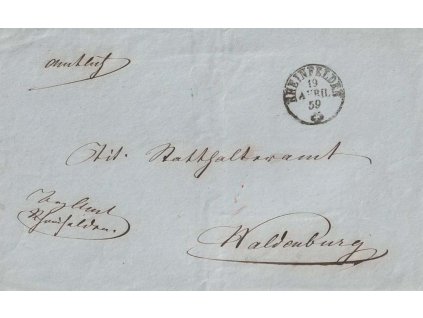 amtlich
RHEINFELDEN
19
APRIL
59
Tit. Statthalteramt
Bez. Amt
Rheinfelden.
Waldenburg